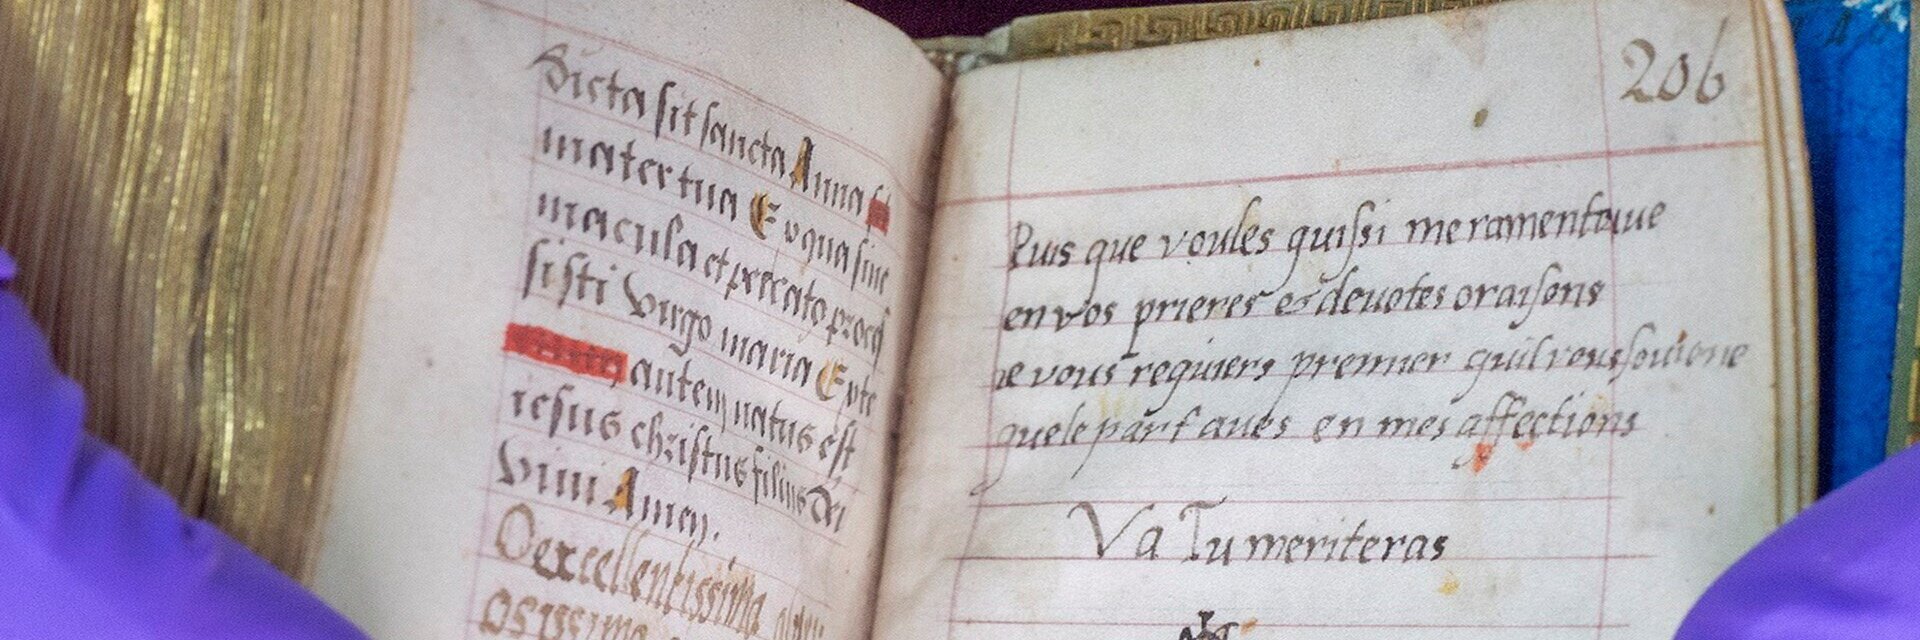 dicta sit sancta Anna
mater tua E qua sine
macula et peccato
sisti virgo maria E
autem natus est
iesus christus filius dei
vivi Amen.
O excellentissima
206
Puis que voules quissi me ramentoiue
en vos prieres et deuotes oraisons
ie vous requiers premier quil vous souuiene
quele part aues en mes affections
Va Tu meriteras